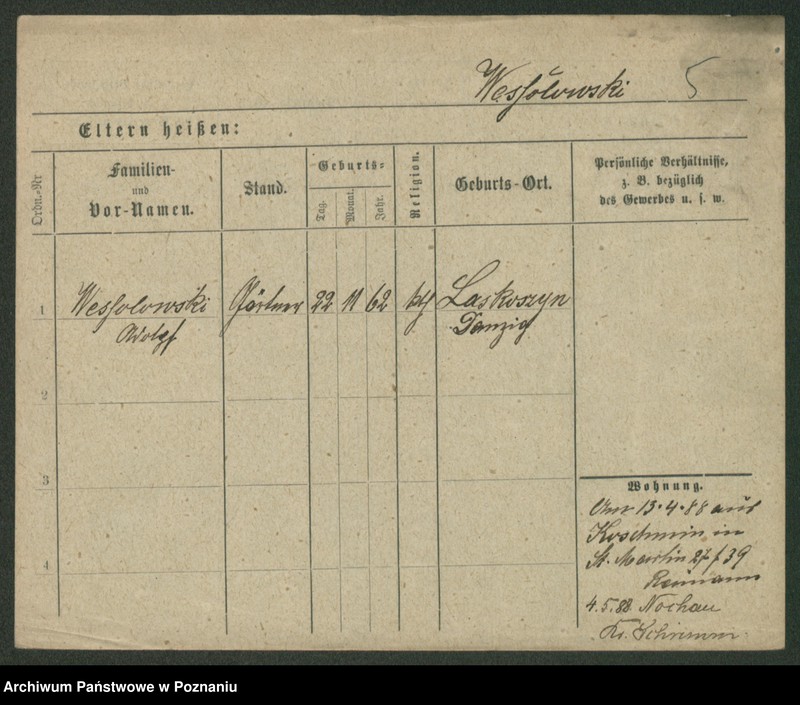 Wessolowski 5
Eltern heißen:
Ordn.-Nr
Familien-
und
Vor-Namen.
Stand.
Geburts-
Tag.
Monat.
Jahr.
Religion.
Geburts-Ort.
Persönliche Verhältnisse,
z. B. bezüglich
des Gewerbes u. s. w.
1 Wessolowski Gärtner 22 11 62 kth Laskoszyn
Adolf Danzig
2
3
4
Wohnung.
Am 13.4.88 aus
Koschmin in
St. Martin 27 f 39
Reimann
4.5.88 Nochau
Kr. Schrimm.
Archiwum Państwowe w Poznaniu